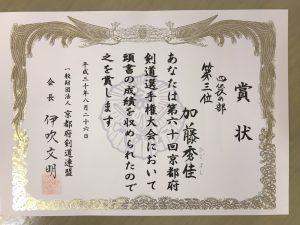 賞状
第三位
加藤秀佳
あなたは第六十回京都府
剣道選手権大会において
頭書の成績を収められたので
之を賞します
平成三十年八月二十六日
一般財団法人 京都府剣道連盟
会長 伊吹文明